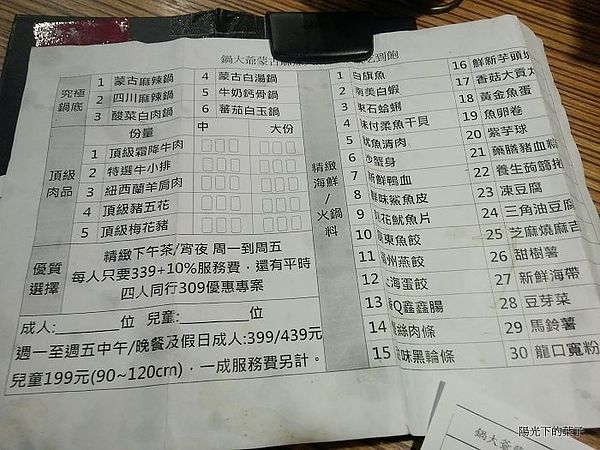 鍋大爺蒙古麻辣 吃到飽
究極鍋底
1 蒙古麻辣鍋 4 蒙古白湯鍋
2 四川麻辣鍋 5 牛奶鈣骨鍋
3 酸菜白肉鍋 6 蕃茄白玉鍋
頂級肉品
份量 中 大份
1 頂級霜降牛肉
2 特選牛小排
3 紐西蘭羊肩肉
4 頂級豬五花
5 頂級梅花豬
優質選擇
精緻下午茶/宵夜 周一到周五
每人只要339+10%服務費，還有平時
四人同行309優惠專案
成人:________位 兒童:________位
週一至週五中午/晚餐及假日成人:399/439元
兒童199元(90~120cm)，一成服務費另計。
精緻海鮮/火鍋料
1 白旗魚
2 南美白蝦
3 東石蛤蜊
4 味付柔魚干貝
5 魷魚清肉
6 沙蟹身
7 新鮮鴨血
8 鮮味鯊魚皮
9 花魷魚片
10 東魚餃
11 州燕餃
12 海蛋餃
13 Q鑫鑫腸
14 絲肉條
15 味黑輪條
16 鮮新芋頭
17 香菇大貢
18 黃金魚蛋
19 魚卵卷
20 紫芋球
21 藥膳豬血
22 養生蒟蒻
23 凍豆腐
24 三角油豆
25 芝麻燒麻
26 甜樹薯
27 新鮮海帶
28 豆芽菜
29 馬鈴薯
30 龍口寬粉
鍋大爺
陽光下的葉子